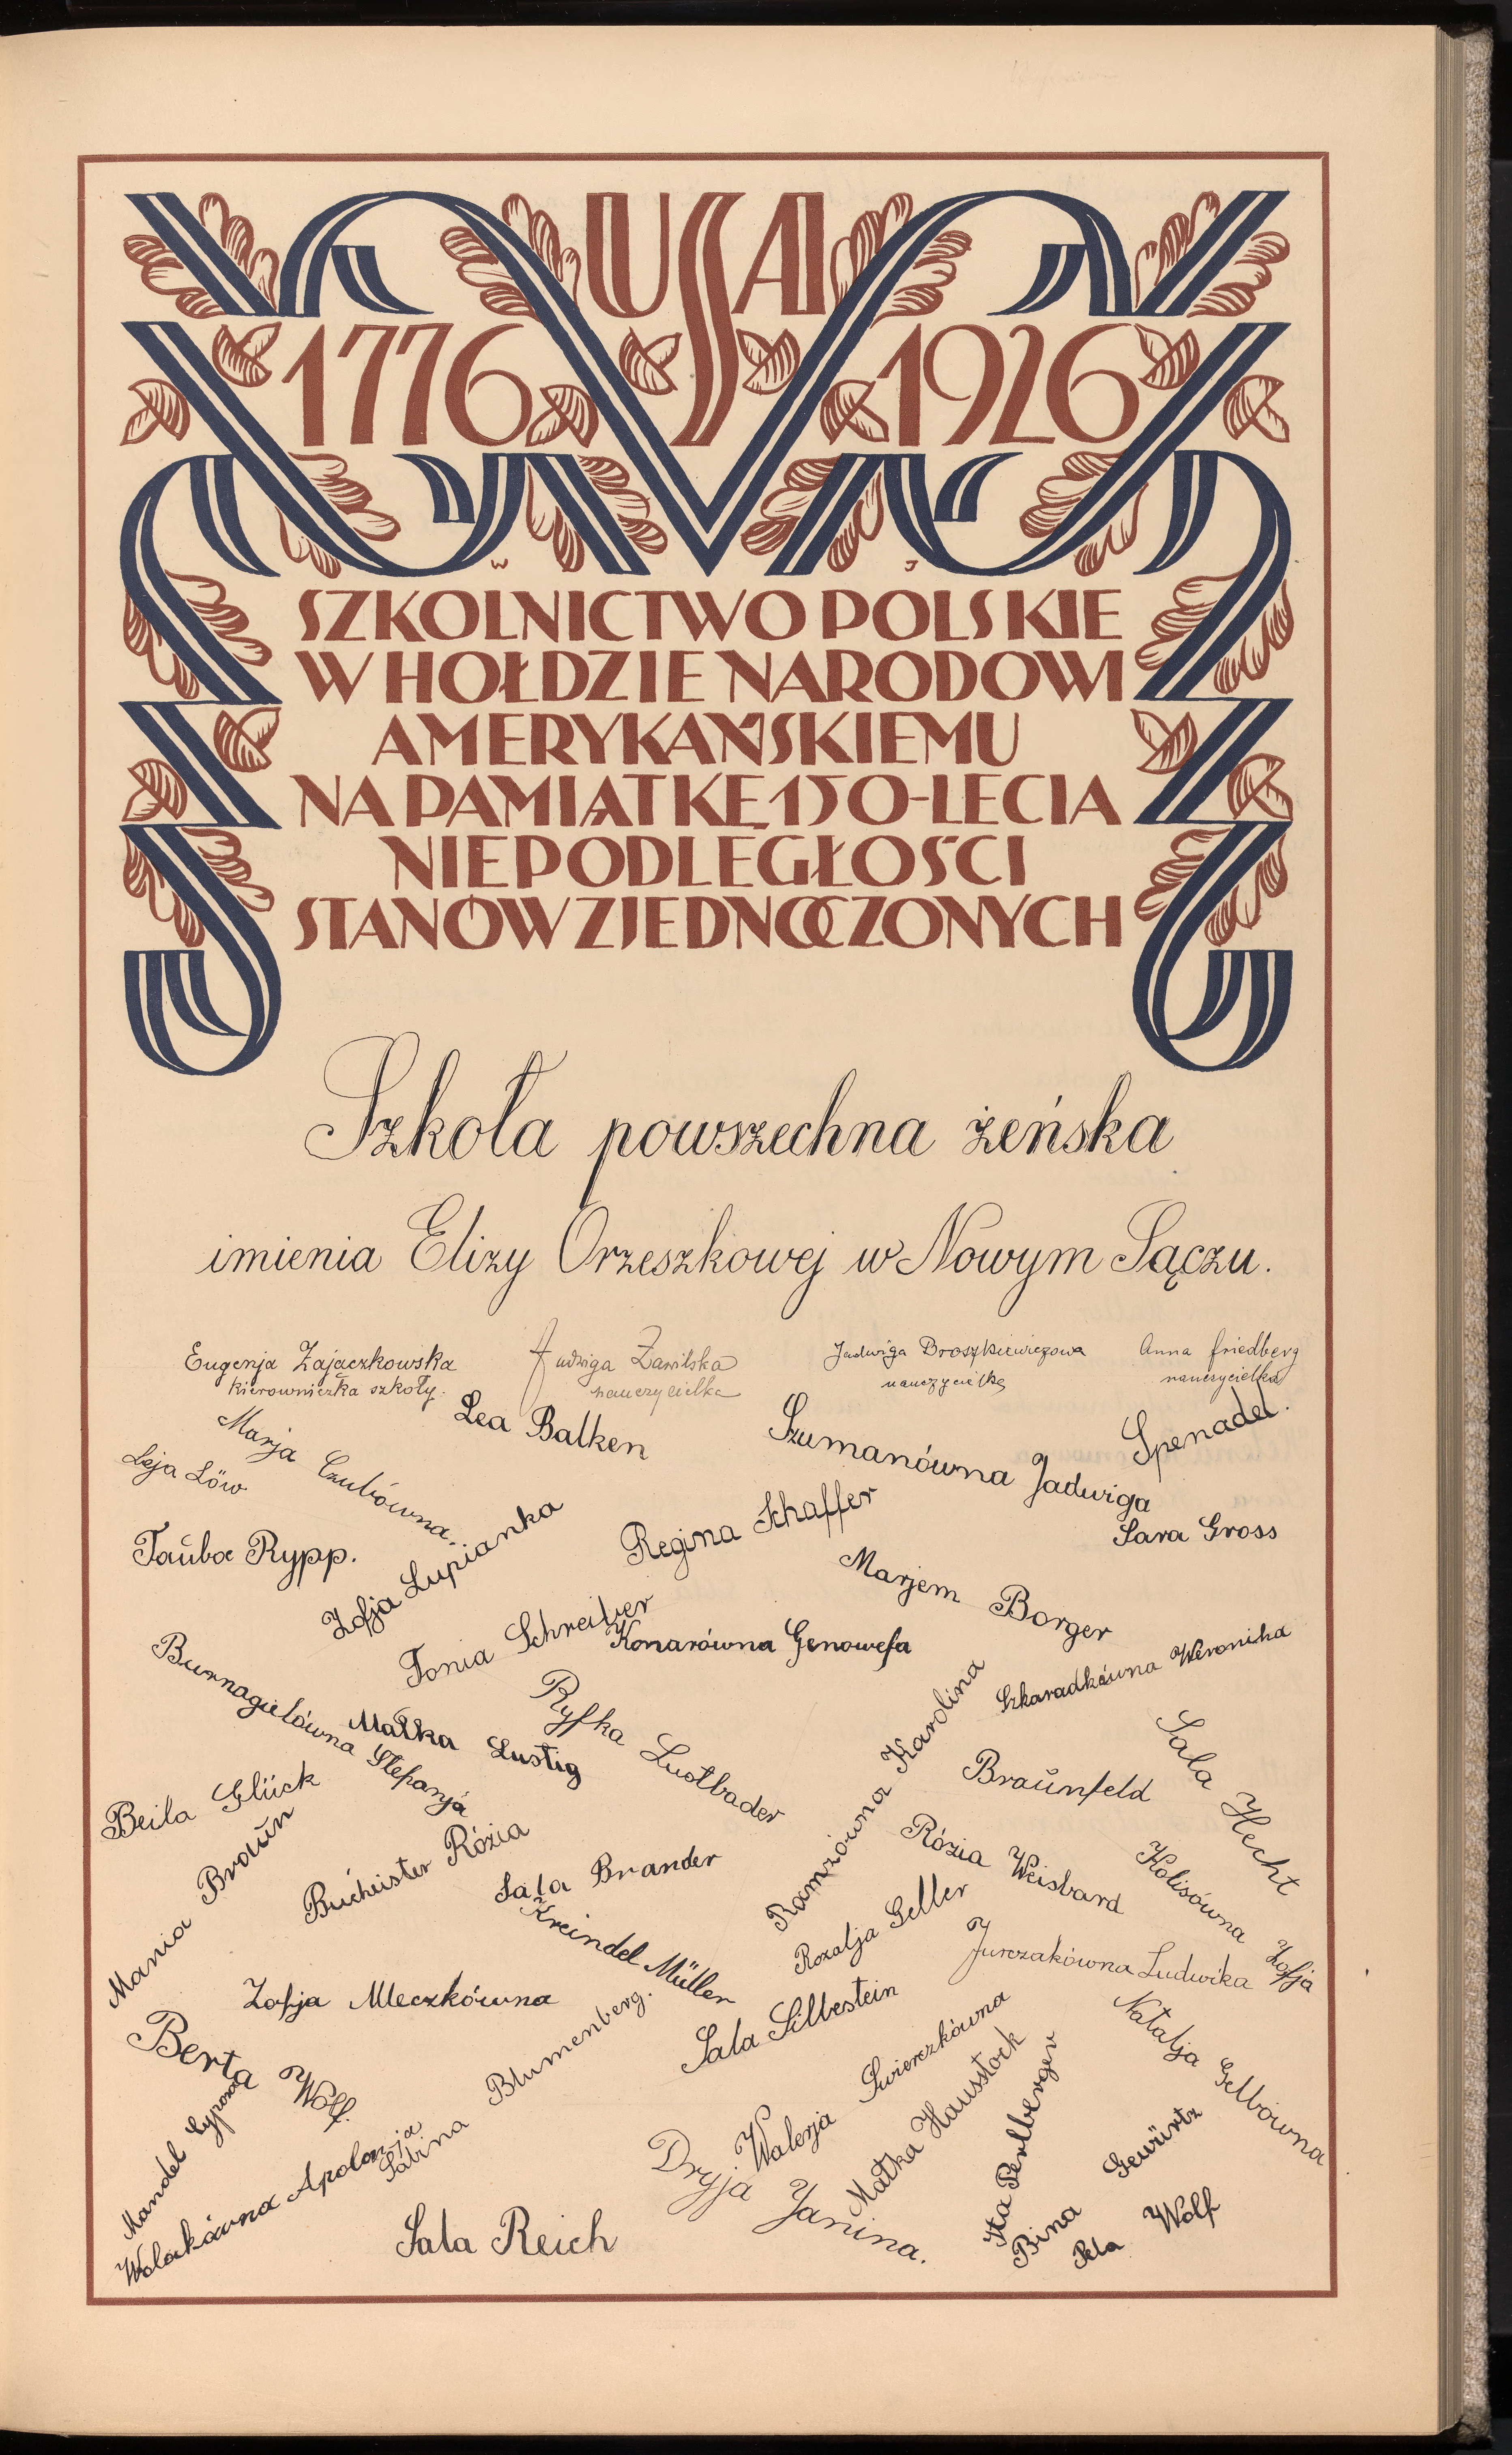 USA
1776 1926
W J
SZKOLNICTWO POLSKIE
W HOŁDZIE NARODOWI
AMERYKAŃSKIEMU
NA PAMIĄTKĘ 150-LECIA
NIEPODLEGŁOŚCI
STANÓW ZJEDNOCZONYCH
Szkoła powszechna żeńska
imienia Elizy Orzeszkowej w Nowym Sączu.
Eugenja Zajaczkowska
kierowniczka szkoły.
Jadwiga Zawilska
nauczycielka
Jadwiga Broszkiewiczowa
nauczycielka
Anna Friedberg
nauczycielka
Lea Balken
Marja Czubówna.
Szumanówna Jadwiga
Spenadel.
Leja Löw
Taŭba Rypp.
Zofja Łupianka
Regina Schaffer
Sara Gross
Marjem Borger
Tonia Schreiber
Konarówna Genowefa
Szkaradkówna Weronika
Burnagielówna Stefanja
Małka Lustig
Ryfka Lustbader
Ramzówna Karolina
Braŭnfeld
Sala Hecht
Beila Glück
Mania Braŭn
Bucheister Rózia
Sala Brander
Rózia Weisbard
Kolisówna Zofja
Kreindel Müller
Rozalja Geller
Jurczakówna Ludwika
Zofja Mleczkówna
Sala Silbestein
Natalja Gelbówna
Berta Wolf.
Sabina Blumenberg.
Walerja Swierczkówna
Małka Hausstock
Ita Perlberger
Mandel Cypora
Wolakówna Apolonja
Dryja Janina.
Bina Gewürtz
Sala Reich
Pela Wolf